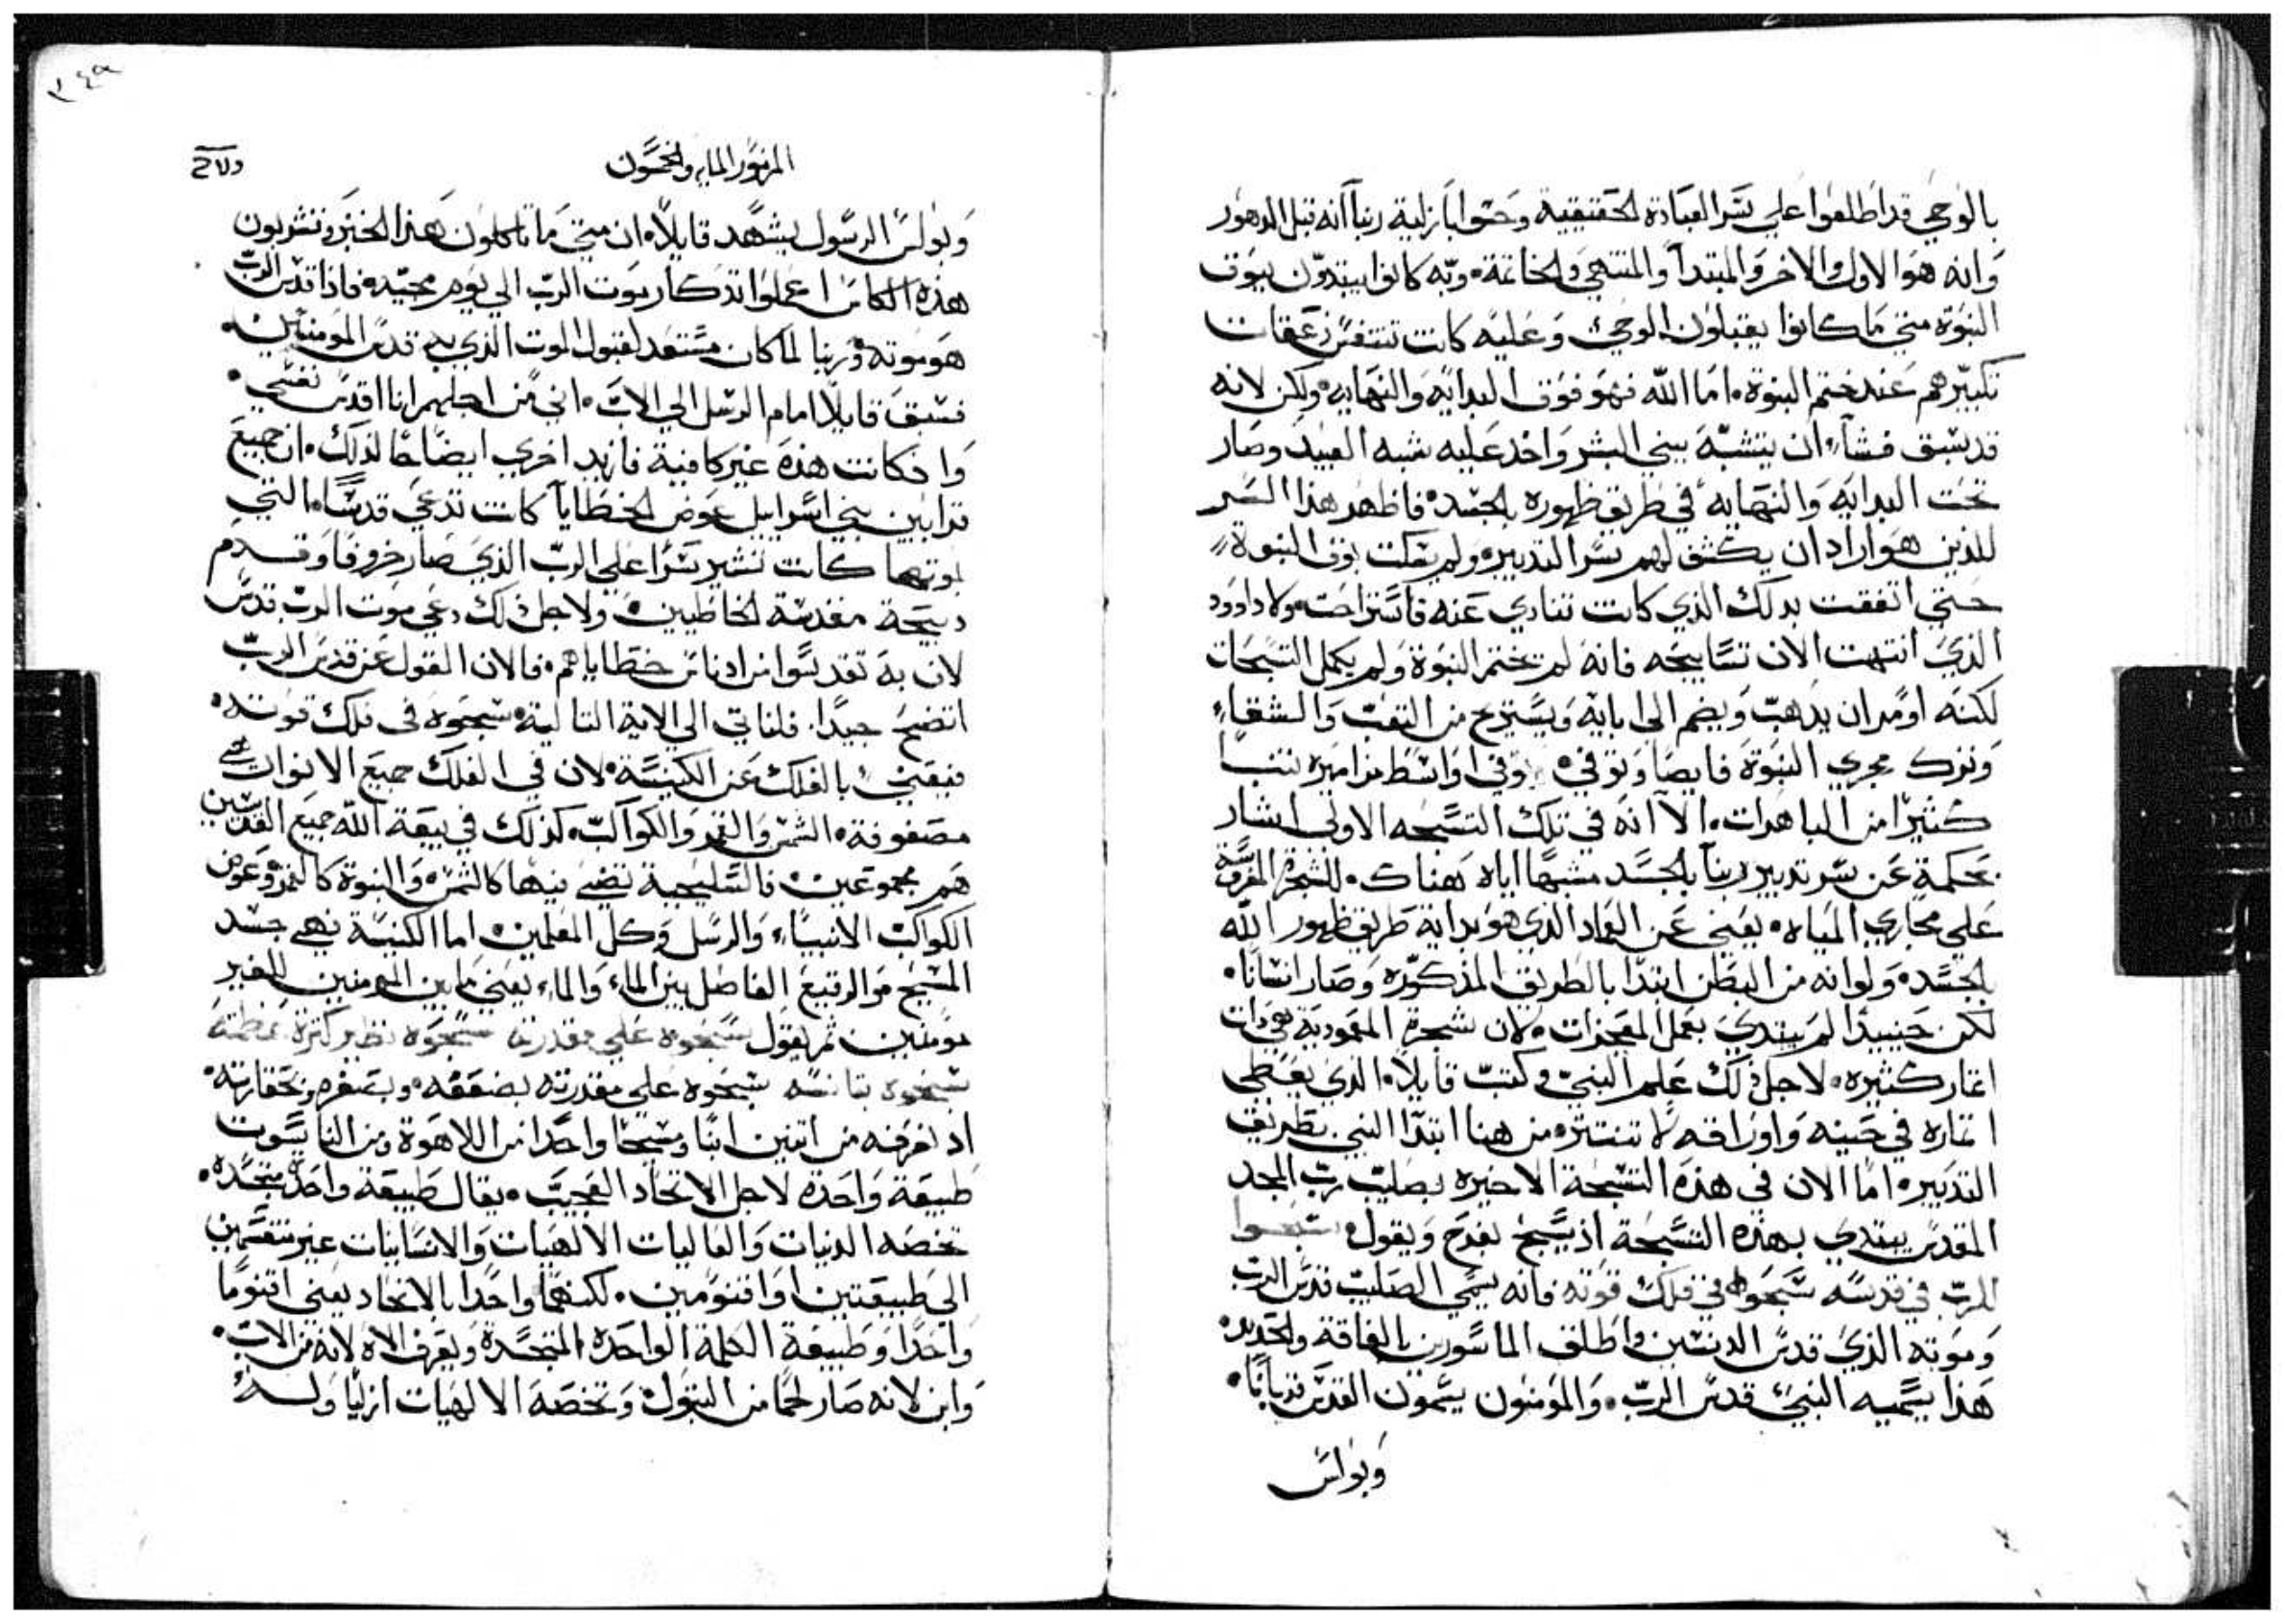 بالوحي قد اطلعوا علي سر العبادة الحقيقية وحتوا بازلية ربنا انه قبل الدهور
وانه هو الاول والاخر والمبتدا والمنتهي والخاتمة وبه كانوا يبتدون ببوق
النبوة متي ما كانوا يقبلون الوحي وعليه كانت تتنفس زعقات
تكبيرهم عند ختم النبوة اما الله فهو فوق البداية والنهايه ولكن لانه
قد سبق فشاء ان يتشبه ببني البشر واخد عليه شبه العبيد وصار
تحت البدايه والنهايه في طريق ظهوره بالجسد فاظهر هذا السر
للذين هو اراد ان يكشف لهم سر التدبير ولم سكت بوق النبوة
حتي اتفقت بدلك الذي كانت تنادي عنه فاستراحت ولا داوود
الذي انتهت الان تسابيحه فانه لم تختم النبوة ولم يكمل التسبحات
لكنه اومر ان يدهب ويضم الي ابايه ويستريح من التعب والشقاء
وترك مجري النبوة فايضا وتوفي وفي اواسط مزاميره تنبا
كثيرا من الباهرات الا انه في تلك التسبحه الاولي اشار
بحكمة عن سر تدبير ربنا بالجسد مشبها اياه هناك للشجرة المغروسة
علي مجاري المياه يعني عن العماد الذي هو بداية طريق ظهور الله
بالجسد ولو انه من البطن ابتدا بالطريق المذكوره وصار انسانا
لكن حينيدا لم يبتدي بعمل المعجزات لان شجرة المعمودية هي دات
اتمار كثيره لاجل ذلك علم النبي وكتب قايلا الذي يعطي
اتماره في حينه واوراقه لا تنتتر من هنا ابتدا النبي بطريق
التدبير اما الان في هذه التسبحة الاخيره بصليب رب المجد
المقدس يبتدي بهذه التسبحة اذ يسبح بفرح ويقول سبحوا
للرب في قدسه سبحوه في فلك قوته فانه يسمي الصليب قدس الرب
وموته الذي قدس الدنسين واطلق الماسورين بالفاقة والحديد
هذا يسميه النبي قدس الرب والمومنون يسمون القدس قربانا
وبولس
٣٤٩
المزمور المايه والخمسون
وبولس الرسول يشهد قايلا ان متي ما تاكلون هذا الخبز وتشربون
هذه الكاس اعملوا تذكار موت الرب الي يوم مجيه فاذا قدس الرب
هو موته وربنا لما كان مستعد لقبول الموت الذي به قدس المومنين
فسبق قايلا امام الرسل الي الاب اني من اجلهم انا اقدس نفسي
وان كانت هذه غير كافية فازيد اخري ايضاحا لذلك ان جميع
قرابين بني اسراييل عوض الخطايا كانت تدعي قدسا التي
بموتها كانت تشير سرا علي الرب الذي صار خروفا وقدم
دبيحة مقدسة الخاطيين ولاجل ذلك دعي موت الرب قدس
لان به تقدسوا من ادناس خطاياهم فالان القول عن قدس الرب
اتضح جيدا فلناتي الي الاية التالية سبحوه في فلك قوته
فيعني بالفلك عن الكنيسة لان في الفلك جميع الانوار هي
مصفوفة الشمس والقمر والكواكب كذلك في بيعة الله جميع القديسين
هم مجموعين فالسليحية تضي فيها كالشمس والنبوة كالقمر وعوض
الكواكب الانبياء والرسل وكل المعلمين اما الكنيسة فهي جسد
المسيح هو الرقيع الفاصل بين الماء والماء يعني ما بين المومنين والغير
مومنين ثم يقول سبحوه علي مقدرته سبحوه نظير كثرة عظمته
سبحوه علي مقدرته بضعفه وبصغره وبحقارته
اد نعرفه من اتنين ابنا ومسيحا واحدا من اللاهوة ومن الناسوت
طبيعة واحدة لاجل الاتحاد العجيب يقال طبيعة واحدة متجسده
تخصه الدنيات والعاليات الالهيات والانسانيات غير منقسمين
الي طبيعتين او اقنومين لكنهما واحدا بالاتحاد يعني اقنوما
واحدا وطبيعة الكلمة الواحدة المتجسدة ويعرف الاه لانه من الاب
وابن لانه صار لحما من البتول وتخصه الالهيات ازليا وله